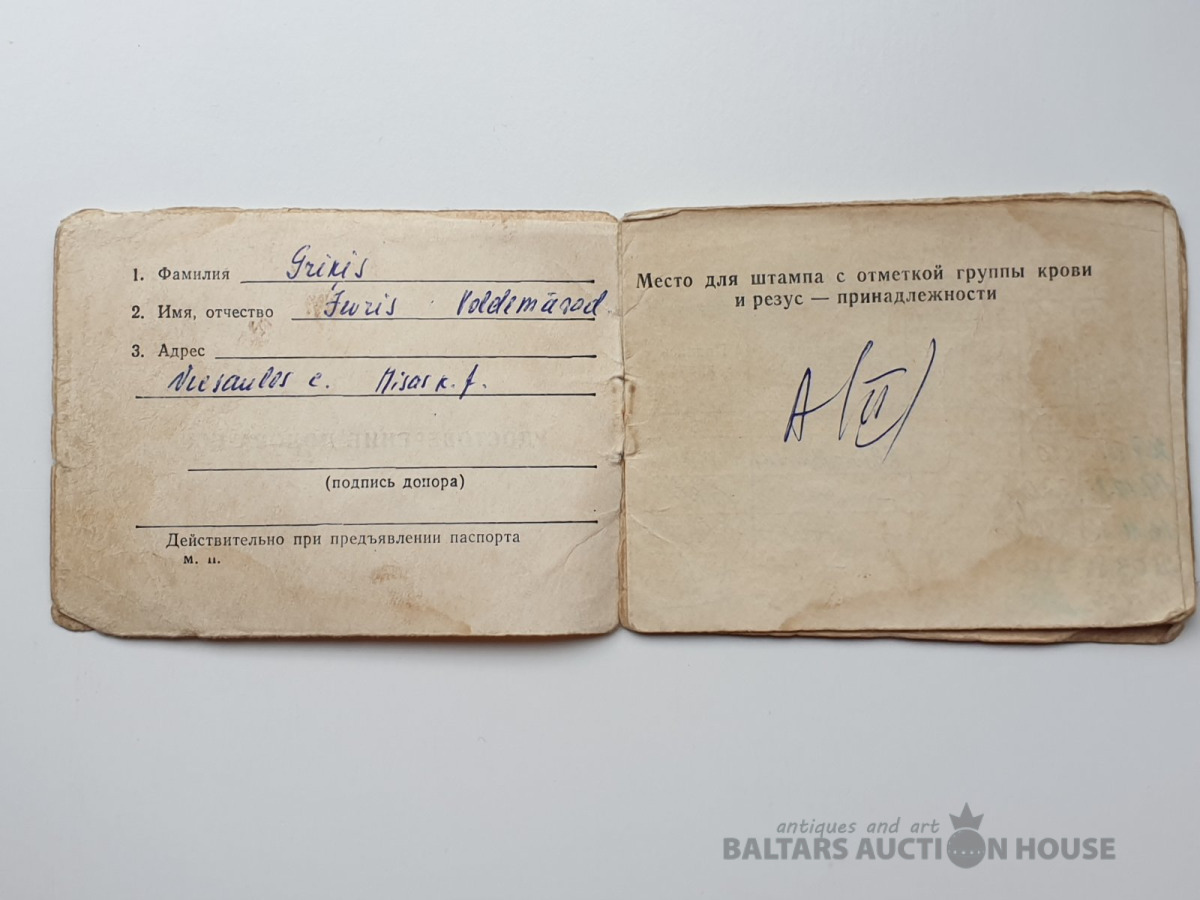 1. Фамилия Griķis
2. Имя, отчество Juris Voldemārod.
3. Адрес
Viesaules c. Misas k. f.
(подпись донора)
Действительно при предъявлении паспорта
м. п.
Место для штампа с отметкой группы крови
и резус — принадлежности
A (II)
antiques and art
BALTARS AUCTION HOUSE